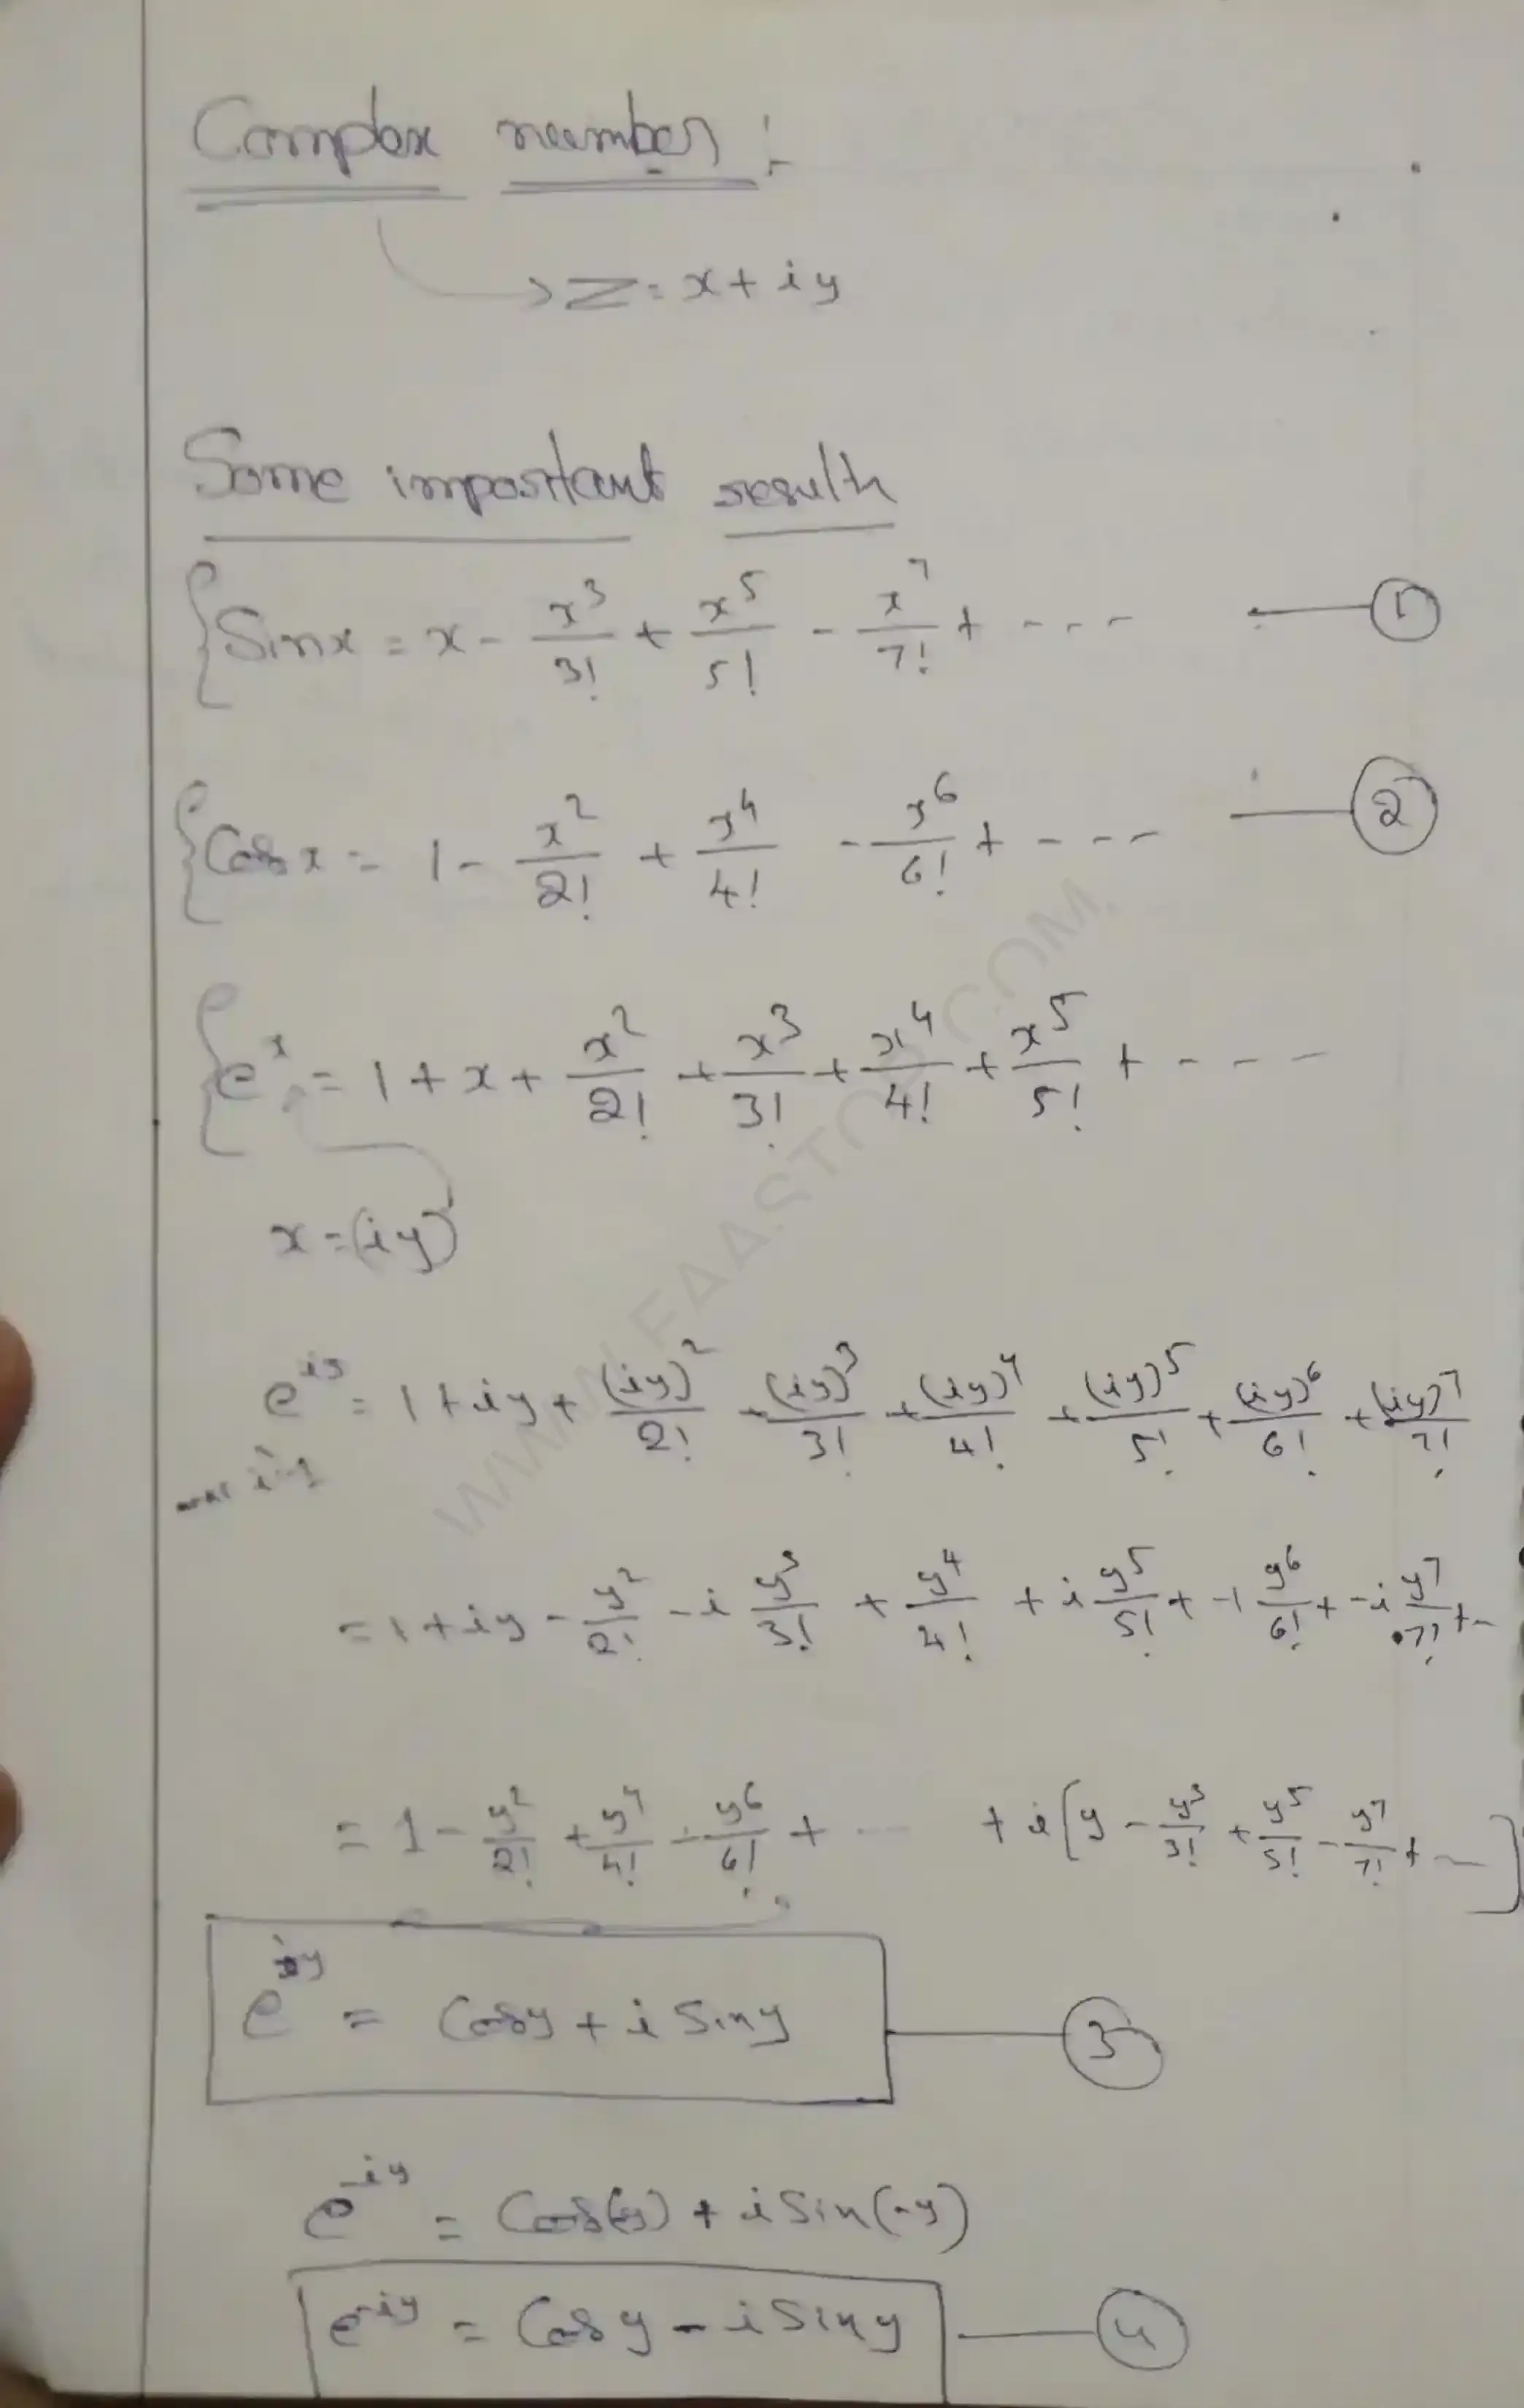 Complex number :-
→ Z = x + iy
Some important result
Sin x = x - x³/3! + x⁵/5! - x⁷/7! + --- — ①
Cos x = 1 - x²/2! + x⁴/4! - x⁶/6! + --- — ②
eˣ = 1 + x + x²/2! + x³/3! + x⁴/4! + x⁵/5! + ----
x = (iy)
e^{iy} = 1 + iy + (iy)²/2! + (iy)³/3! + (iy)⁴/4! + (iy)⁵/5! + (iy)⁶/6! + (iy)⁷/7!
= 1 + iy - y²/2! - i y³/3! + y⁴/4! + i y⁵/5! + -1 y⁶/6! + -i y⁷/7! + -
= 1 - y²/2! + y⁴/4! - y⁶/6! + --- + i[y - y³/3! + y⁵/5! - y⁷/7! + --]
e^{iy} = Cos y + i Sin y — ③
e^{-iy} = Cos(y) + i Sin(-y)
e^{-iy} = Cos y - i Sin y — ④